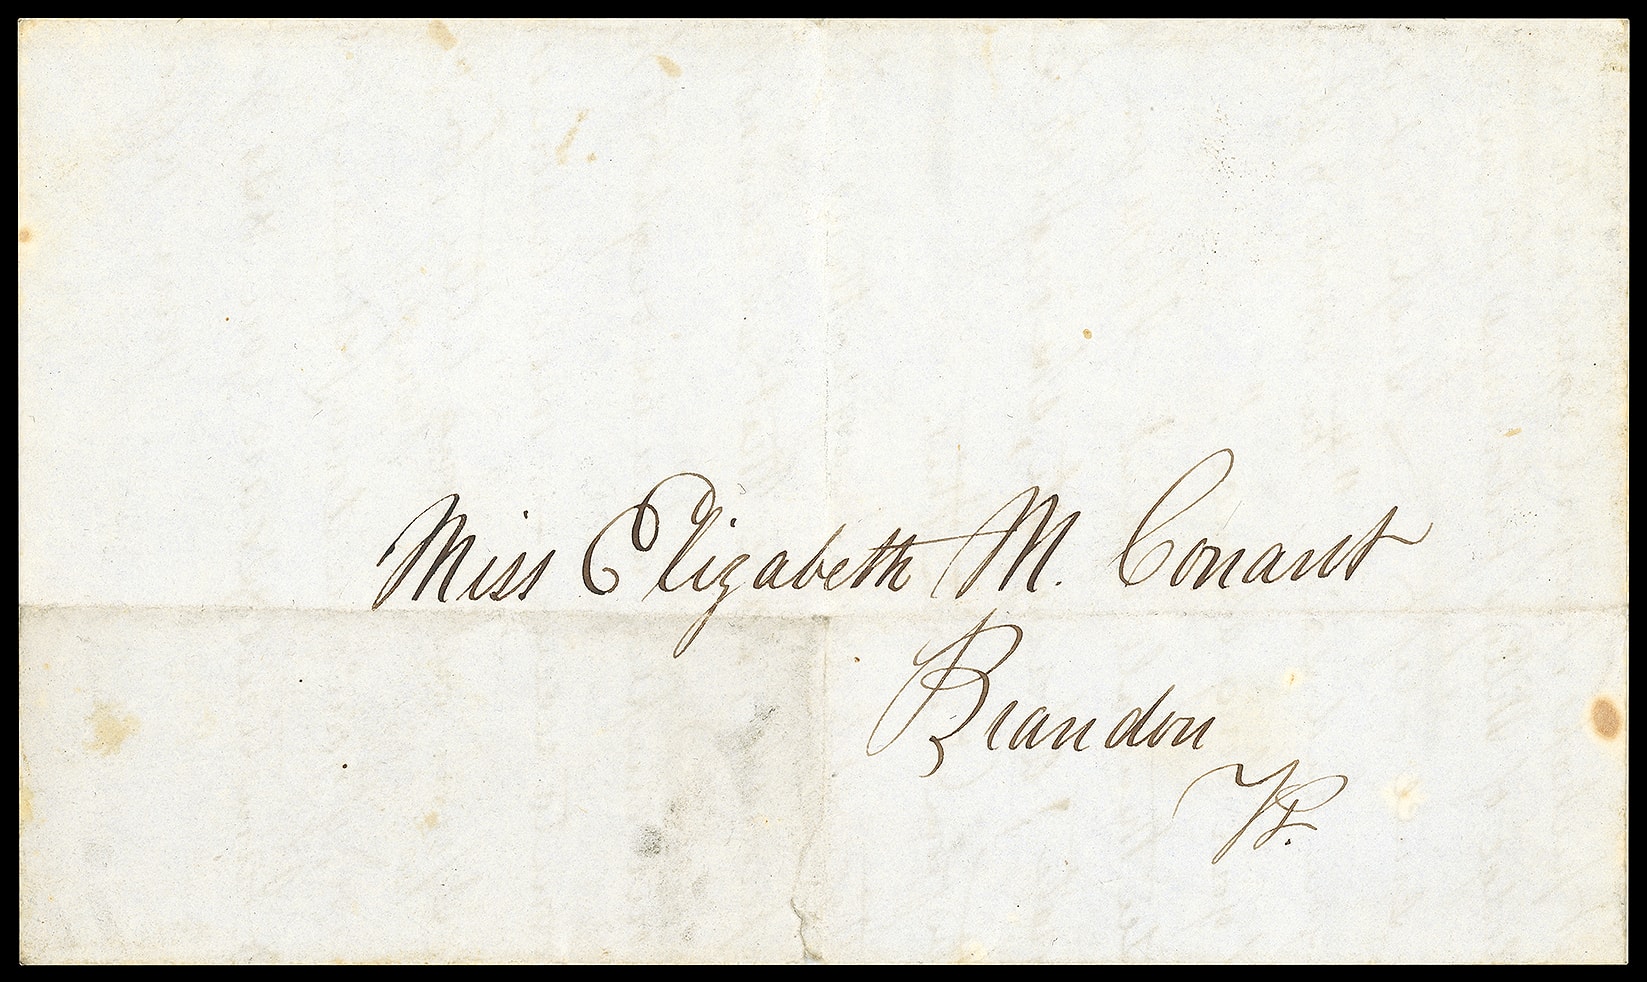 Miss Elizabeth M. Conant
Brandon
Vt.